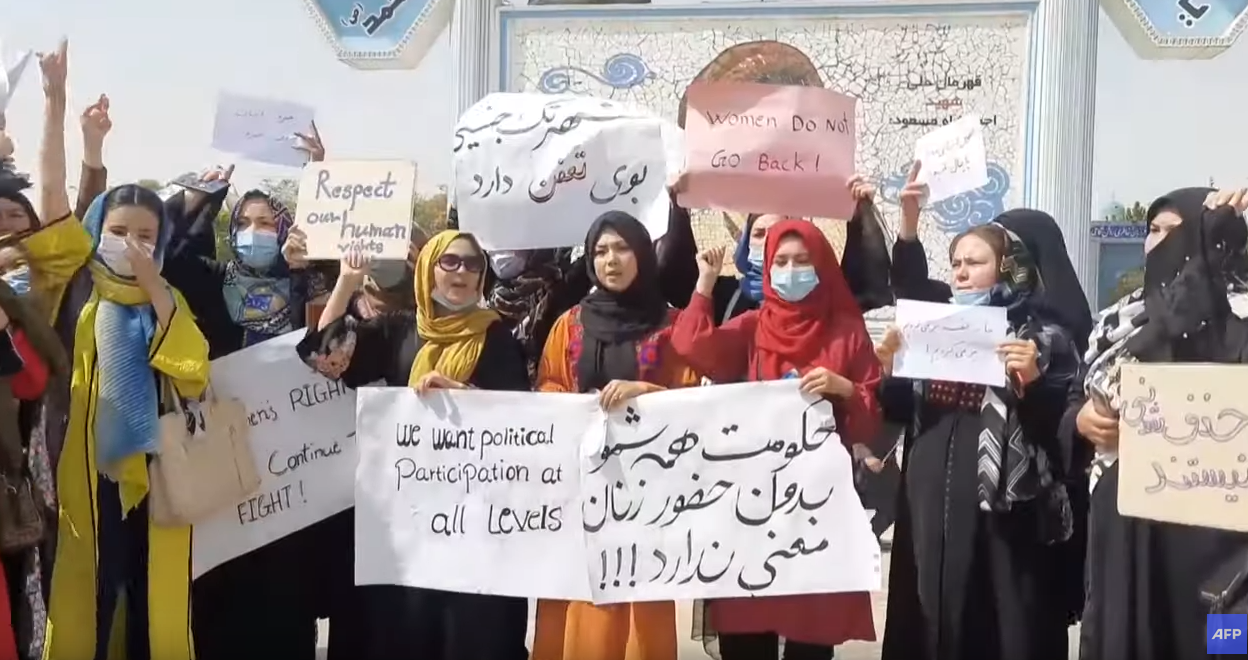 Respect
our human
rights
شهر تک جنسیتی
بوی تعفن دارد
Women Do Not
Go Back!
قهرمان ملی
شهید
مسعود
RIGHT
Continue
FIGHT!
We want political
Participation at
all Levels
حکومت همه شمول
بدون حضور زنان
معنی ندارد!!!
حذف شدنی
نیستند
AFP